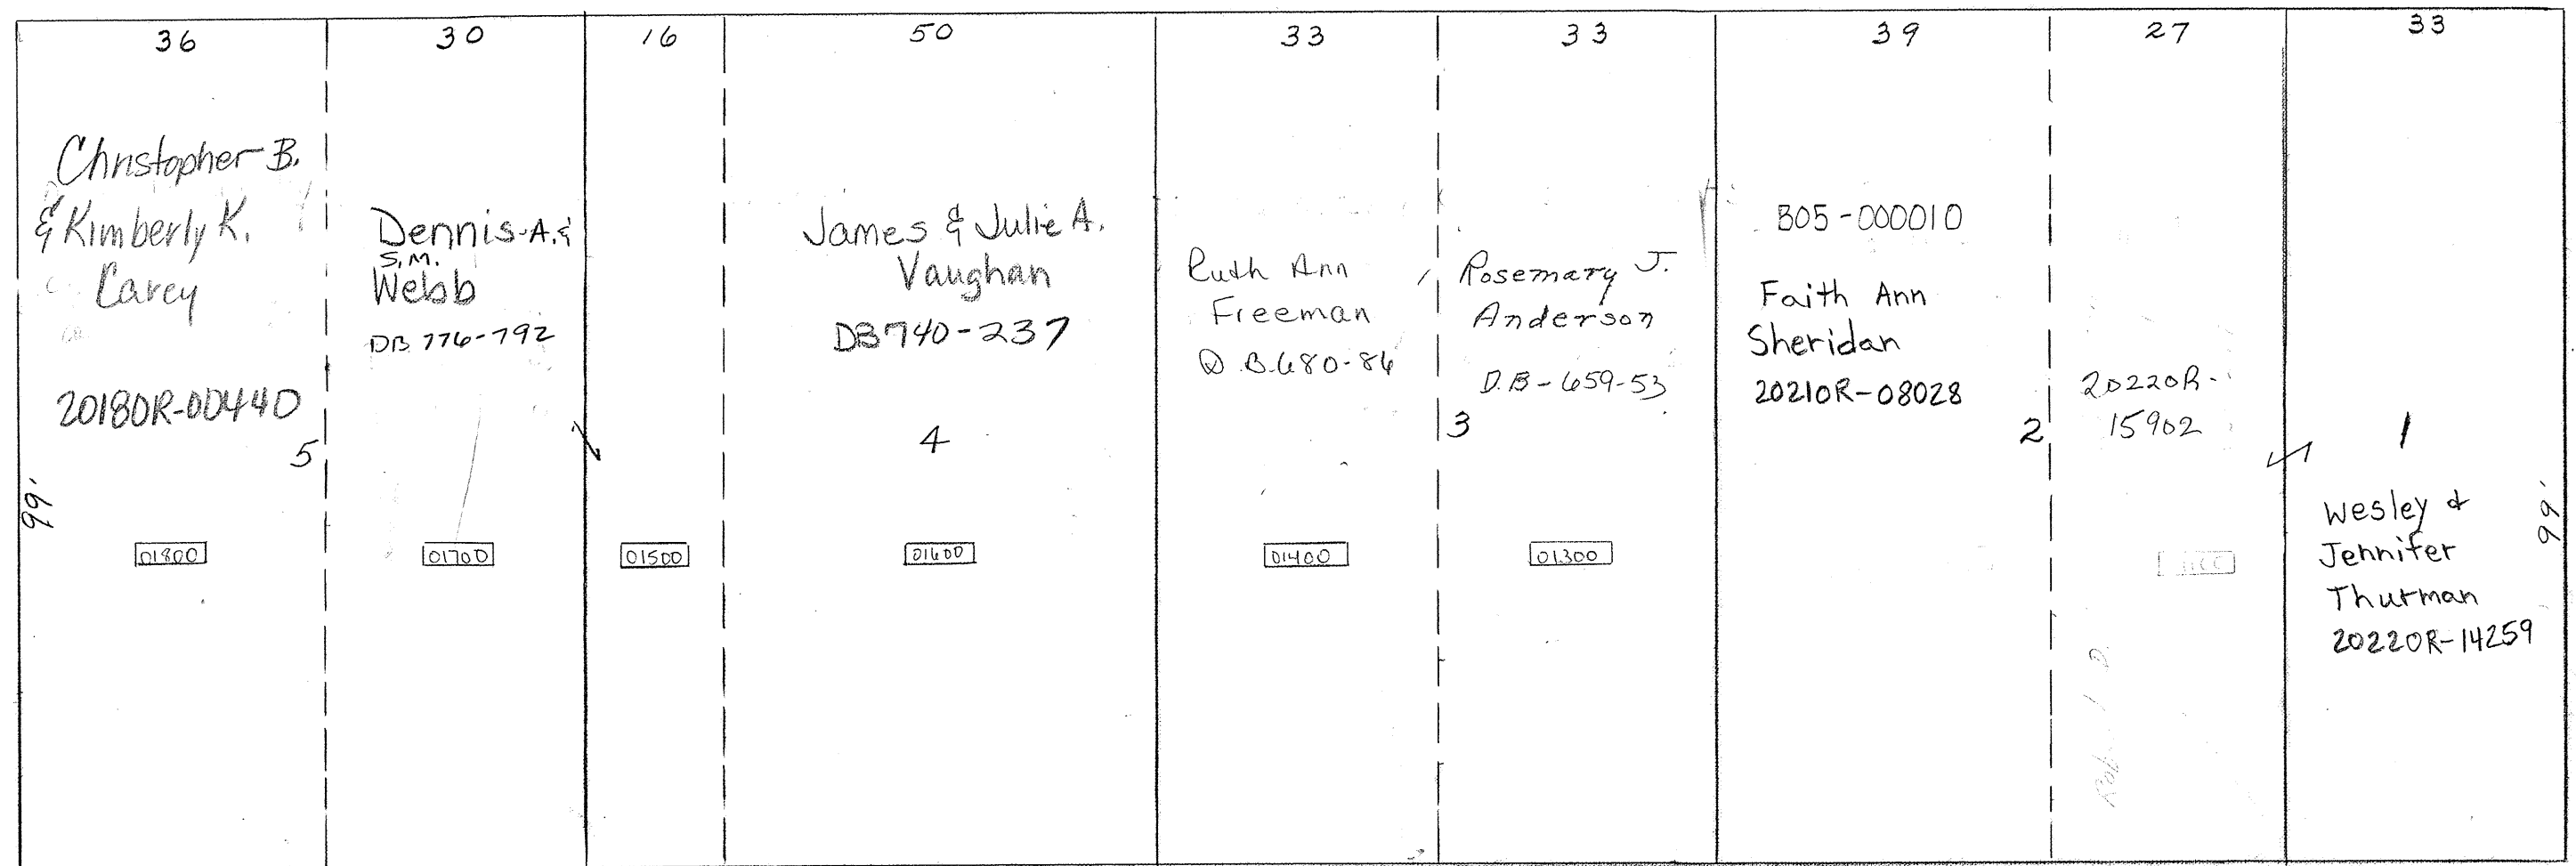 36
30
16
50
33
33
39
27
33
Christopher B.
& Kimberly K.
Carey
20180R-00440
5
99'
01800
Dennis A. &
S.M.
Webb
DB 776-792
01700
01500
James & Julie A.
Vaughan
DB 740-237
4
01600
Ruth Ann
Freeman
D.B. 680-86
01400
3
Rosemary J.
Anderson
D.B-659-53
01300
B05-000010
Faith Ann
Sheridan
20210R-08028
2
20220R-
15902
1
Wesley &
Jennifer
Thurman
20220R-14259
99'